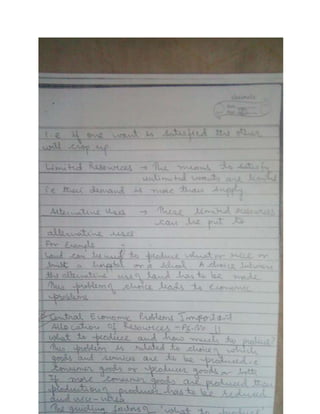 i.e if one want is satisfied the other
will crop up
Limited Resources → The means to satisfy
unlimited wants are limited
i.e their demand is more than supply
Alternative Uses → These limited resources
can be put to
alternative uses
For Example -
Land can be used to produce wheat or rice or
built a hospital or a school. A choice between
the alternative uses of land has to be made
This problem of choice leads to economic
problem
Central Economic Problems Important
Allocation of Resources - Pg-No 11
What to produce and how much to produce?
This problem is related to choice which
goods and services are to be produced i.e
consumer goods or producer goods or both
If more consumer goods are produced then
production of producer has to be reduced
and vice-versa
The guiding factors of what